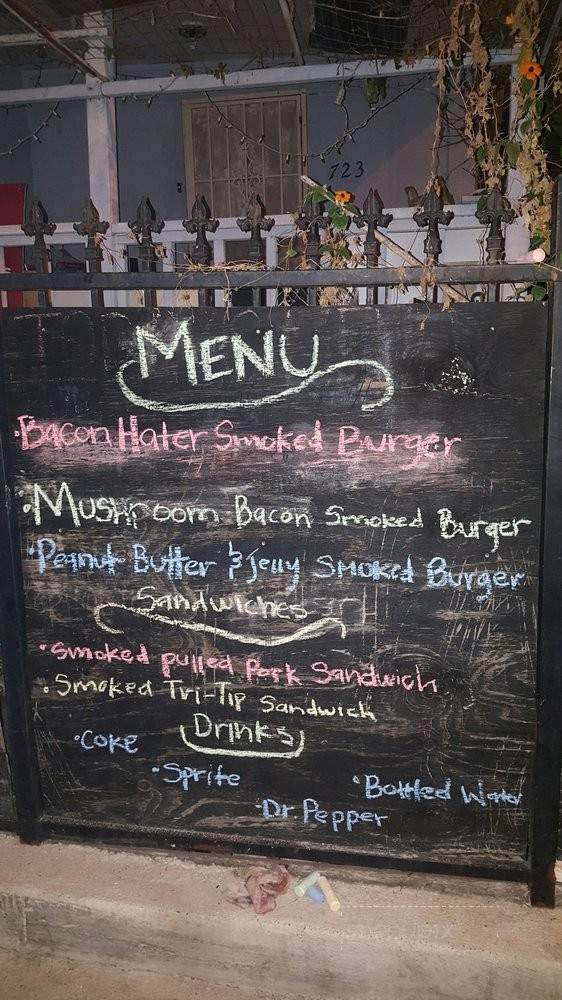 723
MENU
•Bacon Hater Smoked Burger
•Mushroom Bacon Smoked Burger
•Peanut Butter & Jelly Smoked Burger
Sandwiches
•Smoked pulled Pork Sandwich
•Smoked Tri-Tip Sandwich
Drinks
•Coke
•Sprite
•Bottled Water
•Dr Pepper